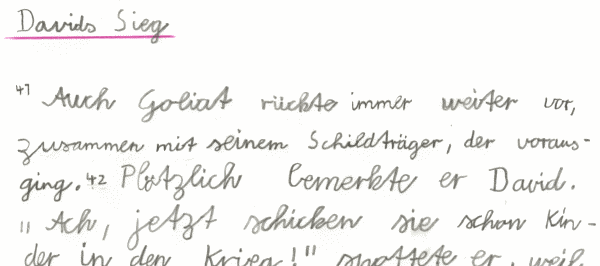 Davids Sieg
41 Auch Goliat rückte immer weiter vor,
zusammen mit seinem Schildträger, der voraus-
ging. 42 Plötzlich bemerkte er David.
"Ach, jetzt schicken sie schon Kin-
der in den Krieg!" spottete er, weil